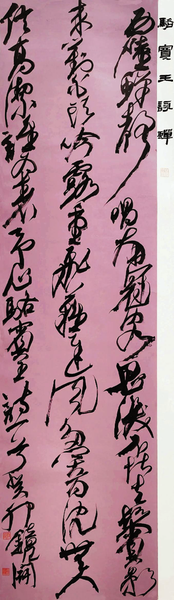 駱賓王詠蟬
西陸蟬聲唱南冠客思深不堪玄鬢影
來對白頭吟露重飛難進風多響易沈無人
信高潔誰為表予心駱賓王詩一首癸卯